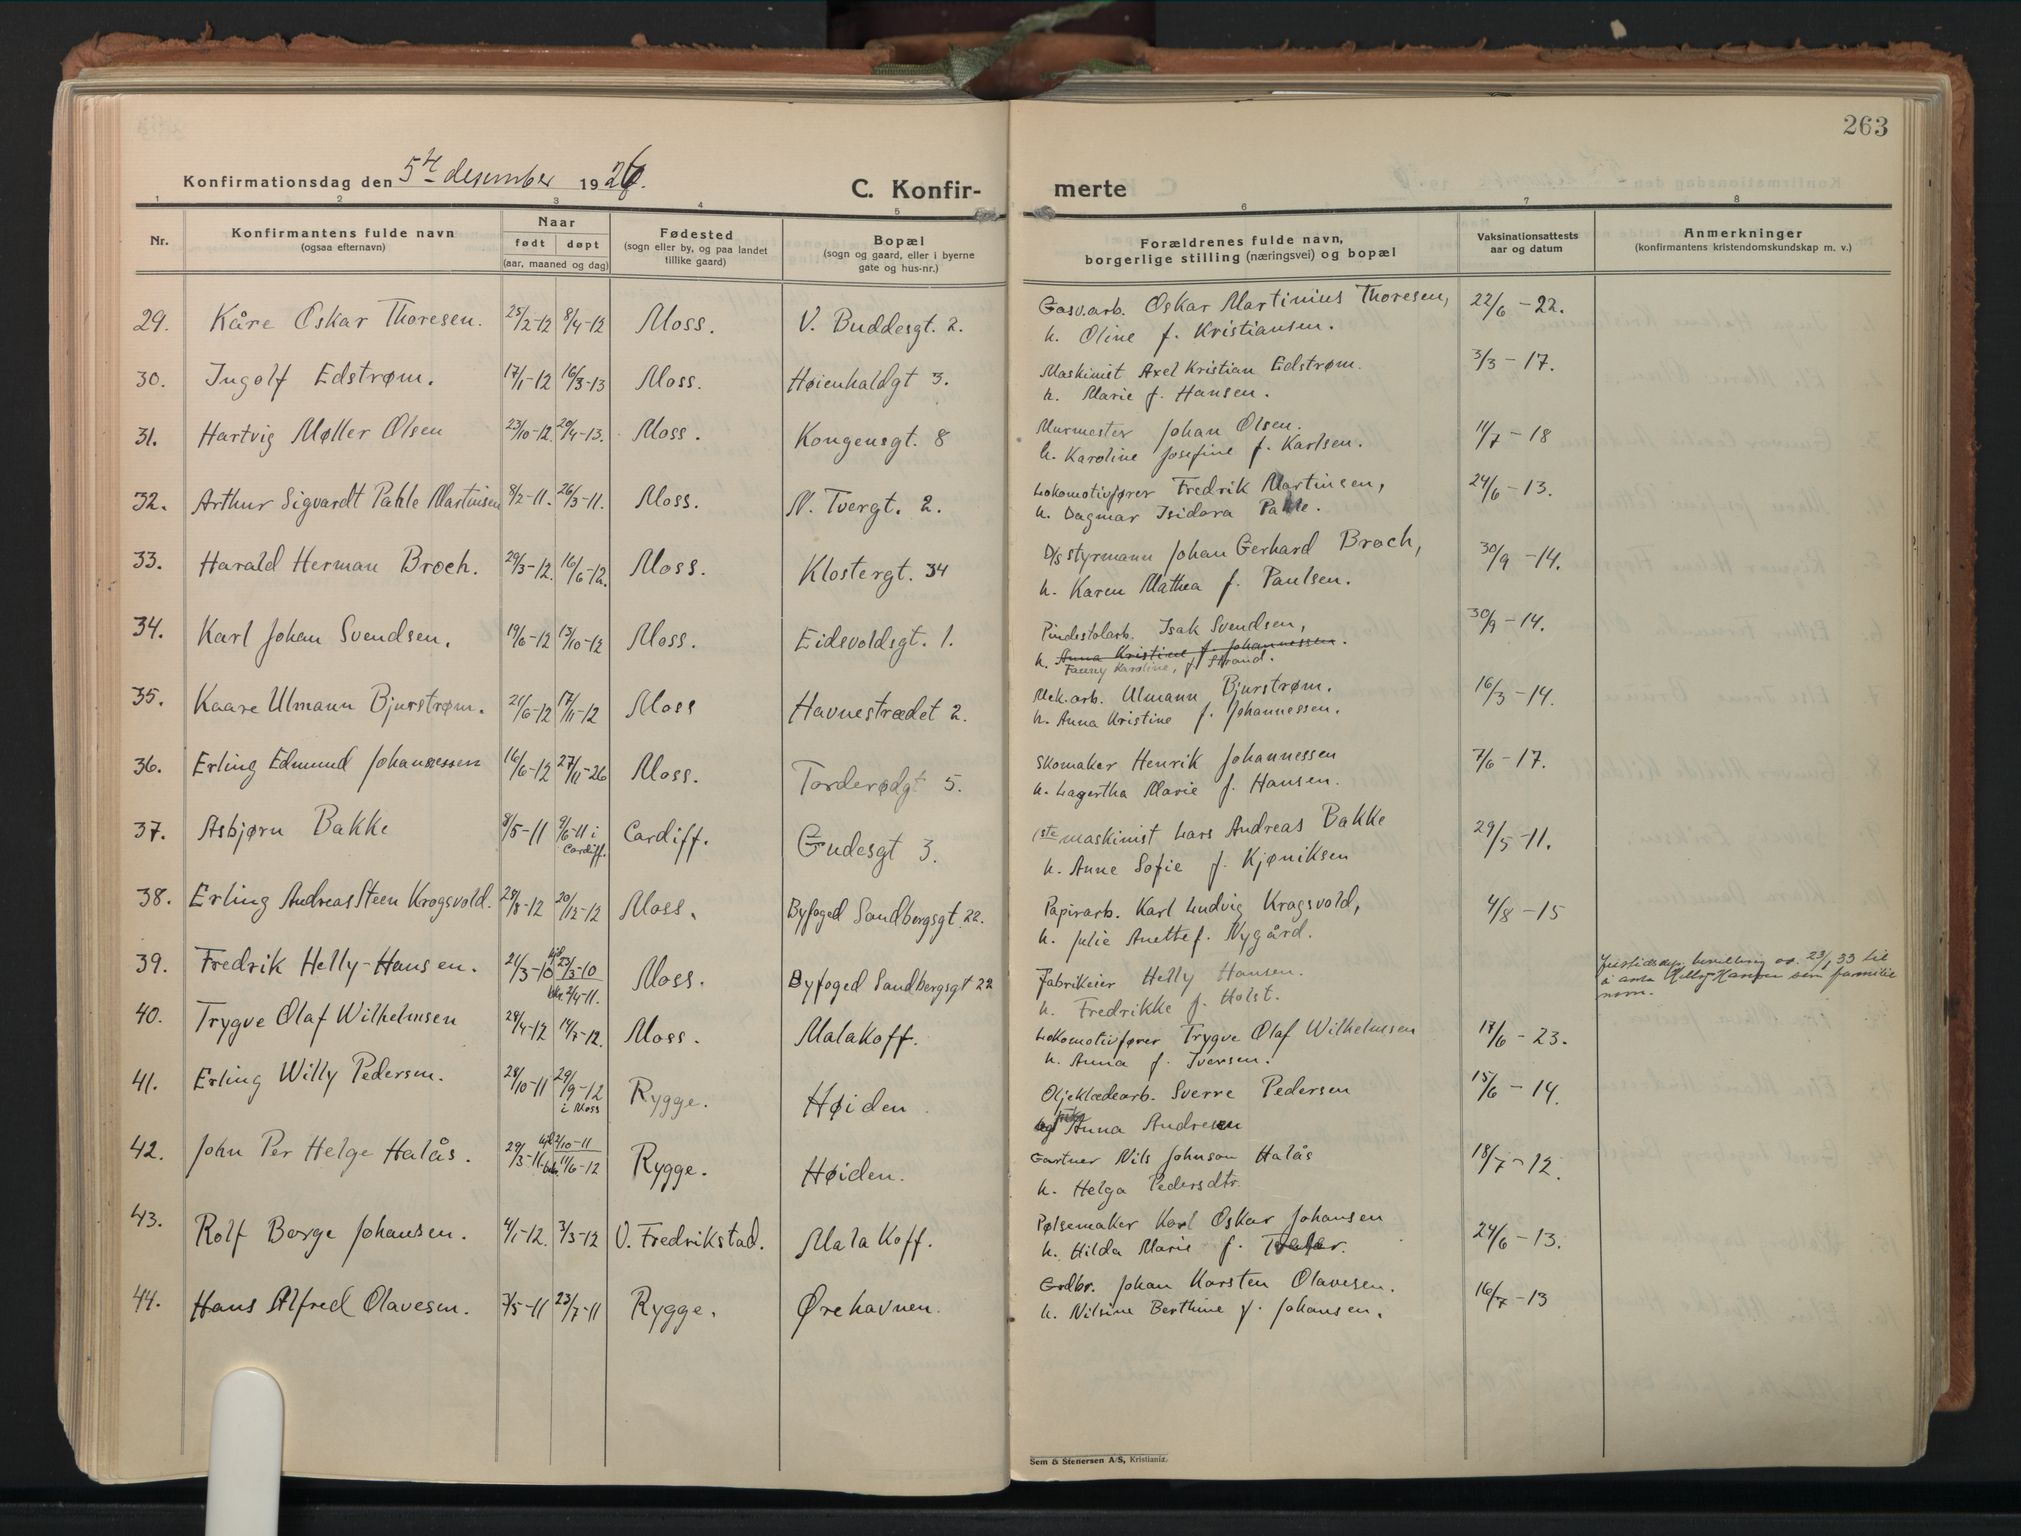 263
Konfirmationsdag den 5te desember 1926.
C. Konfir- merte
1 2 3 4 5 6 7 8
Nr.
Konfirmantens fulde navn
(ogsaa efternavn)
Naar
født døpt
(aar, maaned og dag)
Fødested
(sogn eller by, og paa landet
tillike gaard)
Bopæl
(sogn og gaard, eller i byerne
gate og hus-nr.)
Forældrenes fulde navn,
borgerlige stilling (næringsvei) og bopæl
Vaksinationsattests
aar og datum
Anmerkninger
(konfirmantens kristendomskundskap m. v.)
29. Kåre Oskar Thoresen. 25/2-12 8/4-12 Moss. V. Buddesgt. 2. Gasv.arb. Oskar Martinius Thoresen, 22/6-22.
h. Oline f. Kristiansen.
30. Ingolf Edstrøm. 17/1-12 16/3-13 Moss. Høienhaldgt 3. Maskinist Axel Kristian Edstrøm. 3/3-17.
h. Marie f. Hansen.
31. Hartvig Møller Olsen 23/10-12. 20/4-13. Moss. Kongensgt. 8 Murmester Johan Olsen. 14/7-18
h. Karoline Josefine f. Karlsen.
32. Arthur Sigvardt Pahle Martinsen 8/2-11. 26/3-11. Moss. N. Tvergt. 2. Lokomotivfører Fredrik Martinsen, 24/6-13.
h. Dagmar Isidora Pahle.
33. Harald Herman Broch. 29/3-12. 16/6-12. Moss. Klostergt. 34 D/s styrmann Johan Gerhard Broch, 30/9-14.
h. Karen Mathea f. Paulsen.
34. Karl Johan Svendsen. 19/6-12 13/10-12 Moss. Eidsvoldsgt. 1. Pindestolarb. Isak Svendsen, 30/9-14.
h. Anna Kristine f. Johannessen.
Fanny Karoline, f. Strand.
35. Kaare Ulmann Bjurstrøm. 21/6-12 17/11-12 Moss Havnestrædet 2. Mek.arb. Ulmann Bjurstrøm. 16/3-14.
h. Anna Kristine f. Johannessen.
36. Erling Edmund Johannessen 16/6-12 27/11-26 Moss. Torderødgt 5. Skomaker Henrik Johannessen 7/6-17.
h. Lagertha Marie f. Hansen.
37. Asbjørn Bakke 8/5-11 9/6-11 i Cardiff. Cardiff. Gudesgt 3. 1ste maskinist Lars Andreas Bakke 29/5-11.
h. Anne Sofie f. Kjøniksen
38. Erling Andreas Steen Krogsvold. 28/8-12 20/12-12 Moss. Byfoged Sandbergsgt. 22. Papirarb. Karl Ludvig Krogsvold, 4/8-15
h. Julie Anette f. Nygård.
39. Fredrik Helly-Hansen. 21/3-10 hjd. 23/3-10 Moss. Byfoged Sandbergsgt 22 Fabrikeier Helly Hansen.
bekr. 2/4-11. h. Fredrikke f. Holst.
bevilling av 23/1 33 til
å anta Helly-Hansen som familie
navn.
40. Trygve Olaf Wilhelmsen 28/4-12 14/7-12. Moss. Malakoff. Lokomotivfører Trygve Olaf Wilhelmsen 17/6-23.
h. Anna f. Iversen.
41. Erling Willy Pedersen. 28/10-11 29/9-12 i Moss Rygge. Høiden. Oljeklædearb. Sverre Pedersen 15/6-14.
Anna Andresen
42. John Per Helge Halås. 29/3-11. hjd 2/10-11 bekr. 11/6-12 Rygge. Høiden. Gartner Nils Johnson Halås 18/7-12.
h. Helga Pedersdtr.
43. Rolf Borge Johansen. 4/1-12. 3/3-12 V. Fredrikstad. Malakoff. Pølsemaker Karl Oskar Johansen 24/6-13.
h. Hilda Marie f.
44. Hans Alfred Olavesen. 7/5-11 23/7-11 Rygge. Ørehavnen. Grdbr. Johan Karsten Olavesen. 16/7-13
h. Nilsine Berthine f. Johansen.
Sem & Stenersen A/S, Kristiania.